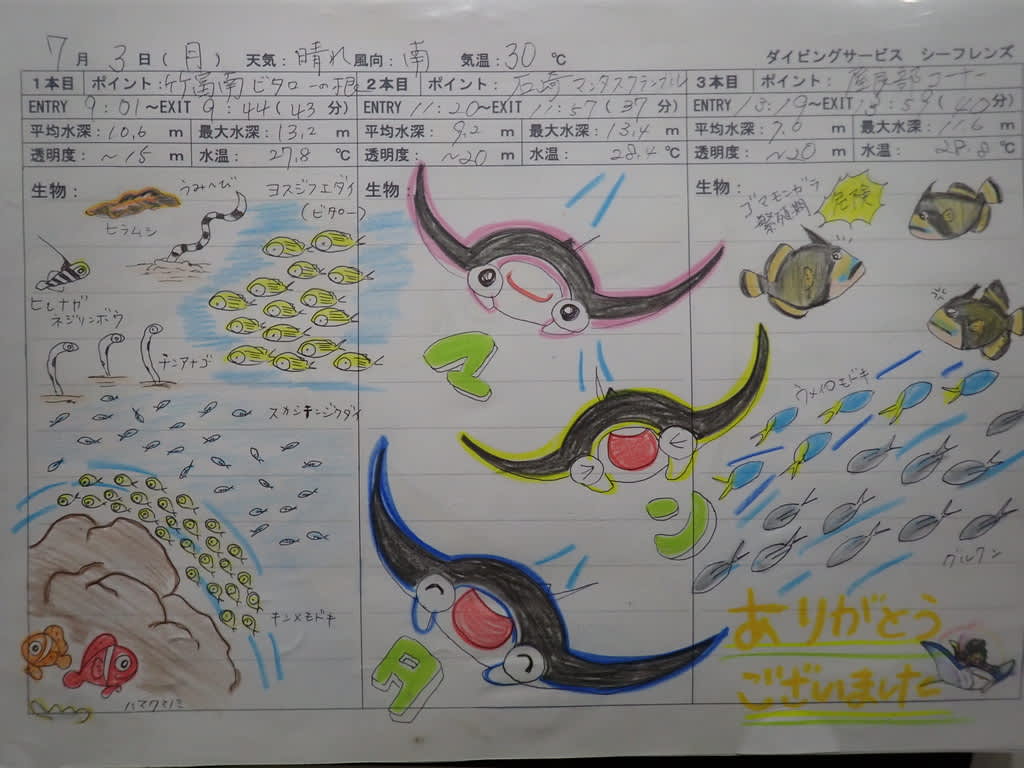 7月3日(月) 天気:晴れ 風向:南 気温:30℃ ダイビングサービス シーフレンズ
1本目 ポイント:竹富南ビタローの根
ENTRY 9:01~EXIT 9:44(43分)
平均水深:10.6m 最大水深:13.2m
透明度:~15m 水温:27.8℃
生物:
うみへび
ヨスジフエダイ
(ビタロー)
ヒラムシ
ヒレナガ
ネジリンボウ
チンアナゴ
スカシテンジクダイ
キンメモドキ
ハマクマノミ
2本目 ポイント:石崎マンタスクランブル
ENTRY 11:20~EXIT 11:57(37分)
平均水深:9.2m 最大水深:13.4m
透明度:~20m 水温:28.4℃
生物:
マ
ン
タ
3本目 ポイント:コーナー
ENTRY 13:19~EXIT 13:59(40分)
平均水深:7.6m 最大水深:11.6m
透明度:~20m 水温:28.8℃
生物:
ゴマモンガラ
繁殖期
危険
ウメイロモドキ
グルクン
ありがとう
ございました